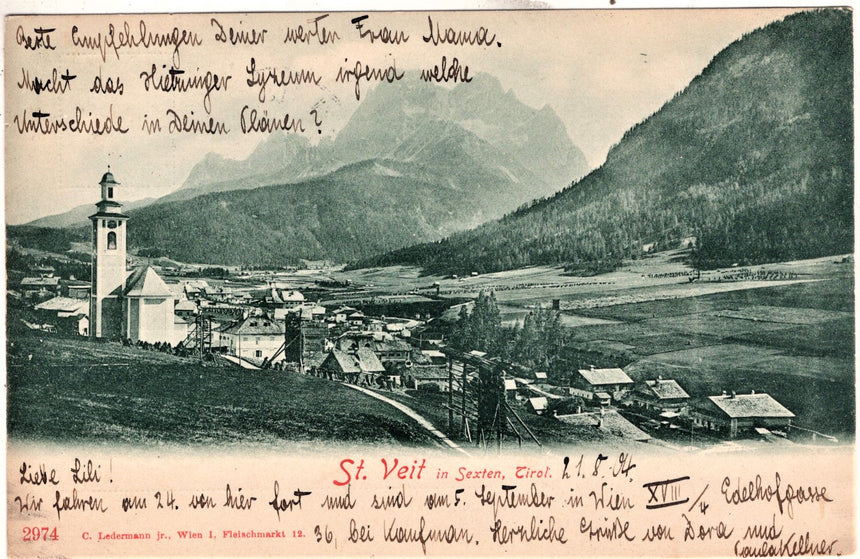 Beste Empfehlungen Deiner werten Frau Mama.
Macht das Hietzinger Lyzeum irgend welche
Unterschiede in Deinen Plänen?
Liebe Lili!
St. Veit in Sexten, Tirol. 21. 8. 04.
Wir fahren am 24. von hier fort und sind am 5. September in Wien XVIII/4 Edelhofgasse
36, bei Kaufman. Herzliche Grüße von Dora und
Kellner.
2974 C. Ledermann jr., Wien I, Fleischmarkt 12.